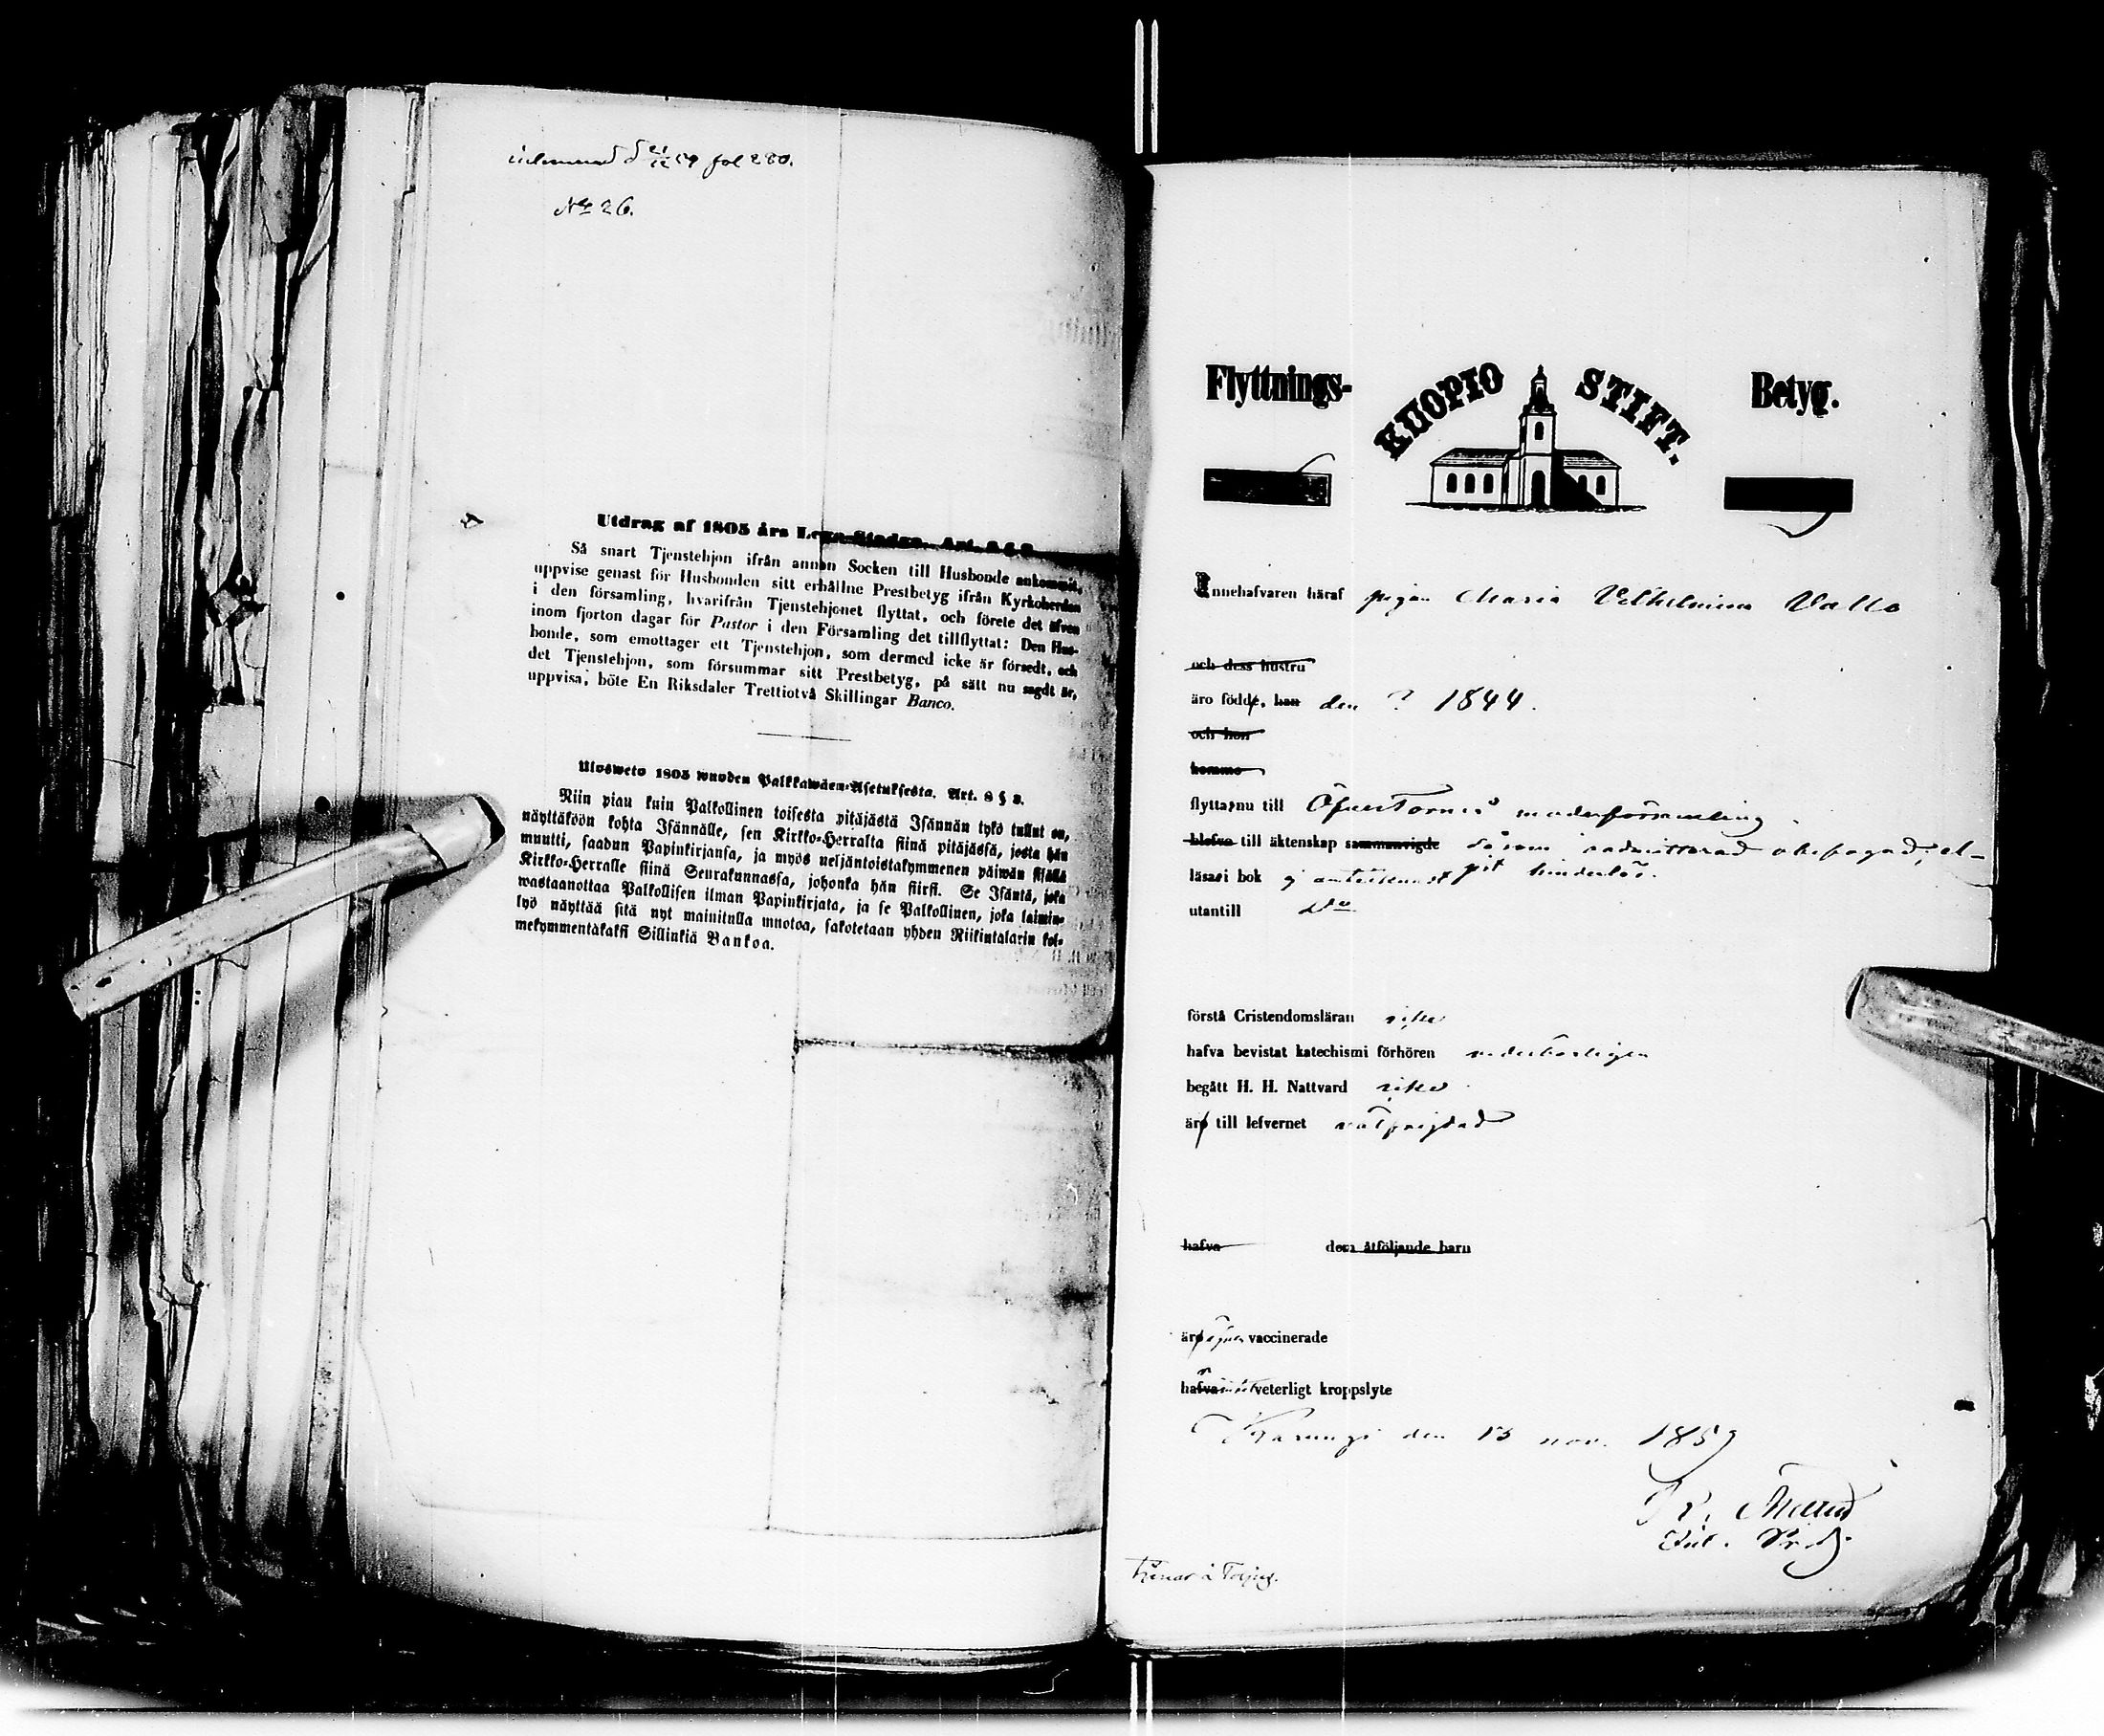 fol 280.
No 26.
Utdrag af 1805 års Lego-Stadga. Art.
Så snart Tjenstehjon ifrån annan Socken till Husbonde ankommit,
uppvise genast för Husbonden sitt erhållne Prestbetyg ifrån Kyrkoherden
i den församling, hvarifrån Tjenstehjonet flyttat, och förete det äfven
inom fjorton dagar för Pastor i den Församling det tillflyttat: Den Hus-
bonde, som emottager ett Tjenstehjon, som dermed icke är försedt, och
det Tjenstehjon, som försummar sitt Prestbetyg, på sätt nu sagdt är,
uppvisa, böte En Riksdaler Trettiotvå Skillingar Banco.
Ulosweto 1805 wuoden Palkkawäen-Asetuksesta. Art. 8 §
Niin piau kuin Palkollinen toisesta pitäjästä Isännän tykö tullut on,
näyttäköön kohta Isännälle, sen Kirkko-Herralta siinä pitäjässä, josta hän
muutti, saadun Papinkirjansa, ja myös neljäntoistakymmenen päiwän sisällä
Kirkko-Herralle siinä Seurakunnassa, johonka hän siirsi. Se Isäntä, joka
wastaanottaa Palkollisen ilman Papinkirjata, ja se Palkollinen, joka laimin-
lyö näyttää sitä nyt mainitulla muotoa, sakotetaan yhden Riikintalarin kol-
mekymmentäkaksi Sillinkiä Bankoa.
Flyttnings- KUOPIO STIFT. Betyg.
Innehafvaren häraf pigan Maria Vilhelmina Vallo
och dess hustru
äro födde, han den ? 1844.
och hon
komme
flytta nu till ÖfverTorneå moderförsamling
blefvo till äktenskap sammanvigde såsom
läsa i bok hinderlös.
utantill Do
förstå Cristendomsläran
hafva bevistat katechismi förhören
begått H. H. Nattvard
äro till lefvernet välfrejdad
hafva dem åtföljande barn
äro vaccinerade
hafva veterligt kroppslyte
Karungi den 13 nov. 1859